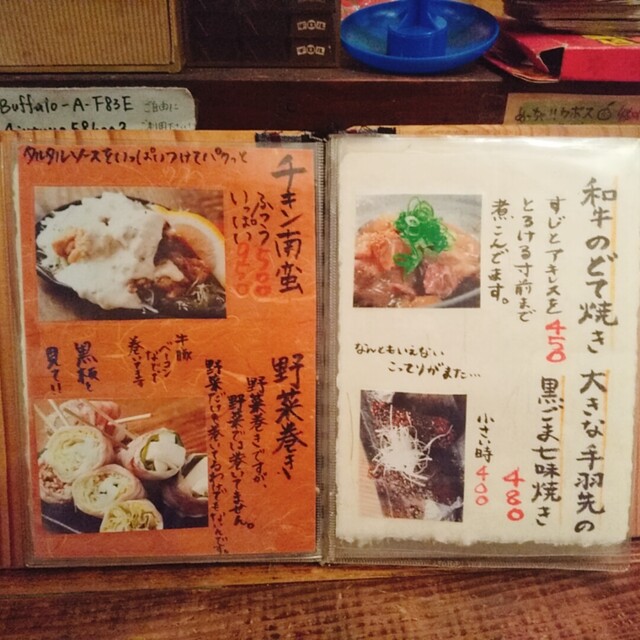 Buffalo-A-F83E
ご自由に
タルタルソースをいっぱいつけてパクっと
チキン南蛮
ふつう500
いっぱい950
牛豚
ベーコン
などに
巻いてます
黒板を
見て!!
野菜巻き
野菜巻きですが、
野菜では巻いてません。
野菜だけを巻いてるわけでもないんです。
和牛のどて焼き
450
すじとアキレスを
とろける寸前まで
煮こんでます。
大きな手羽先の
黒ごま七味焼き
480
小さい時
400
なんともいえない
こってりがまた…